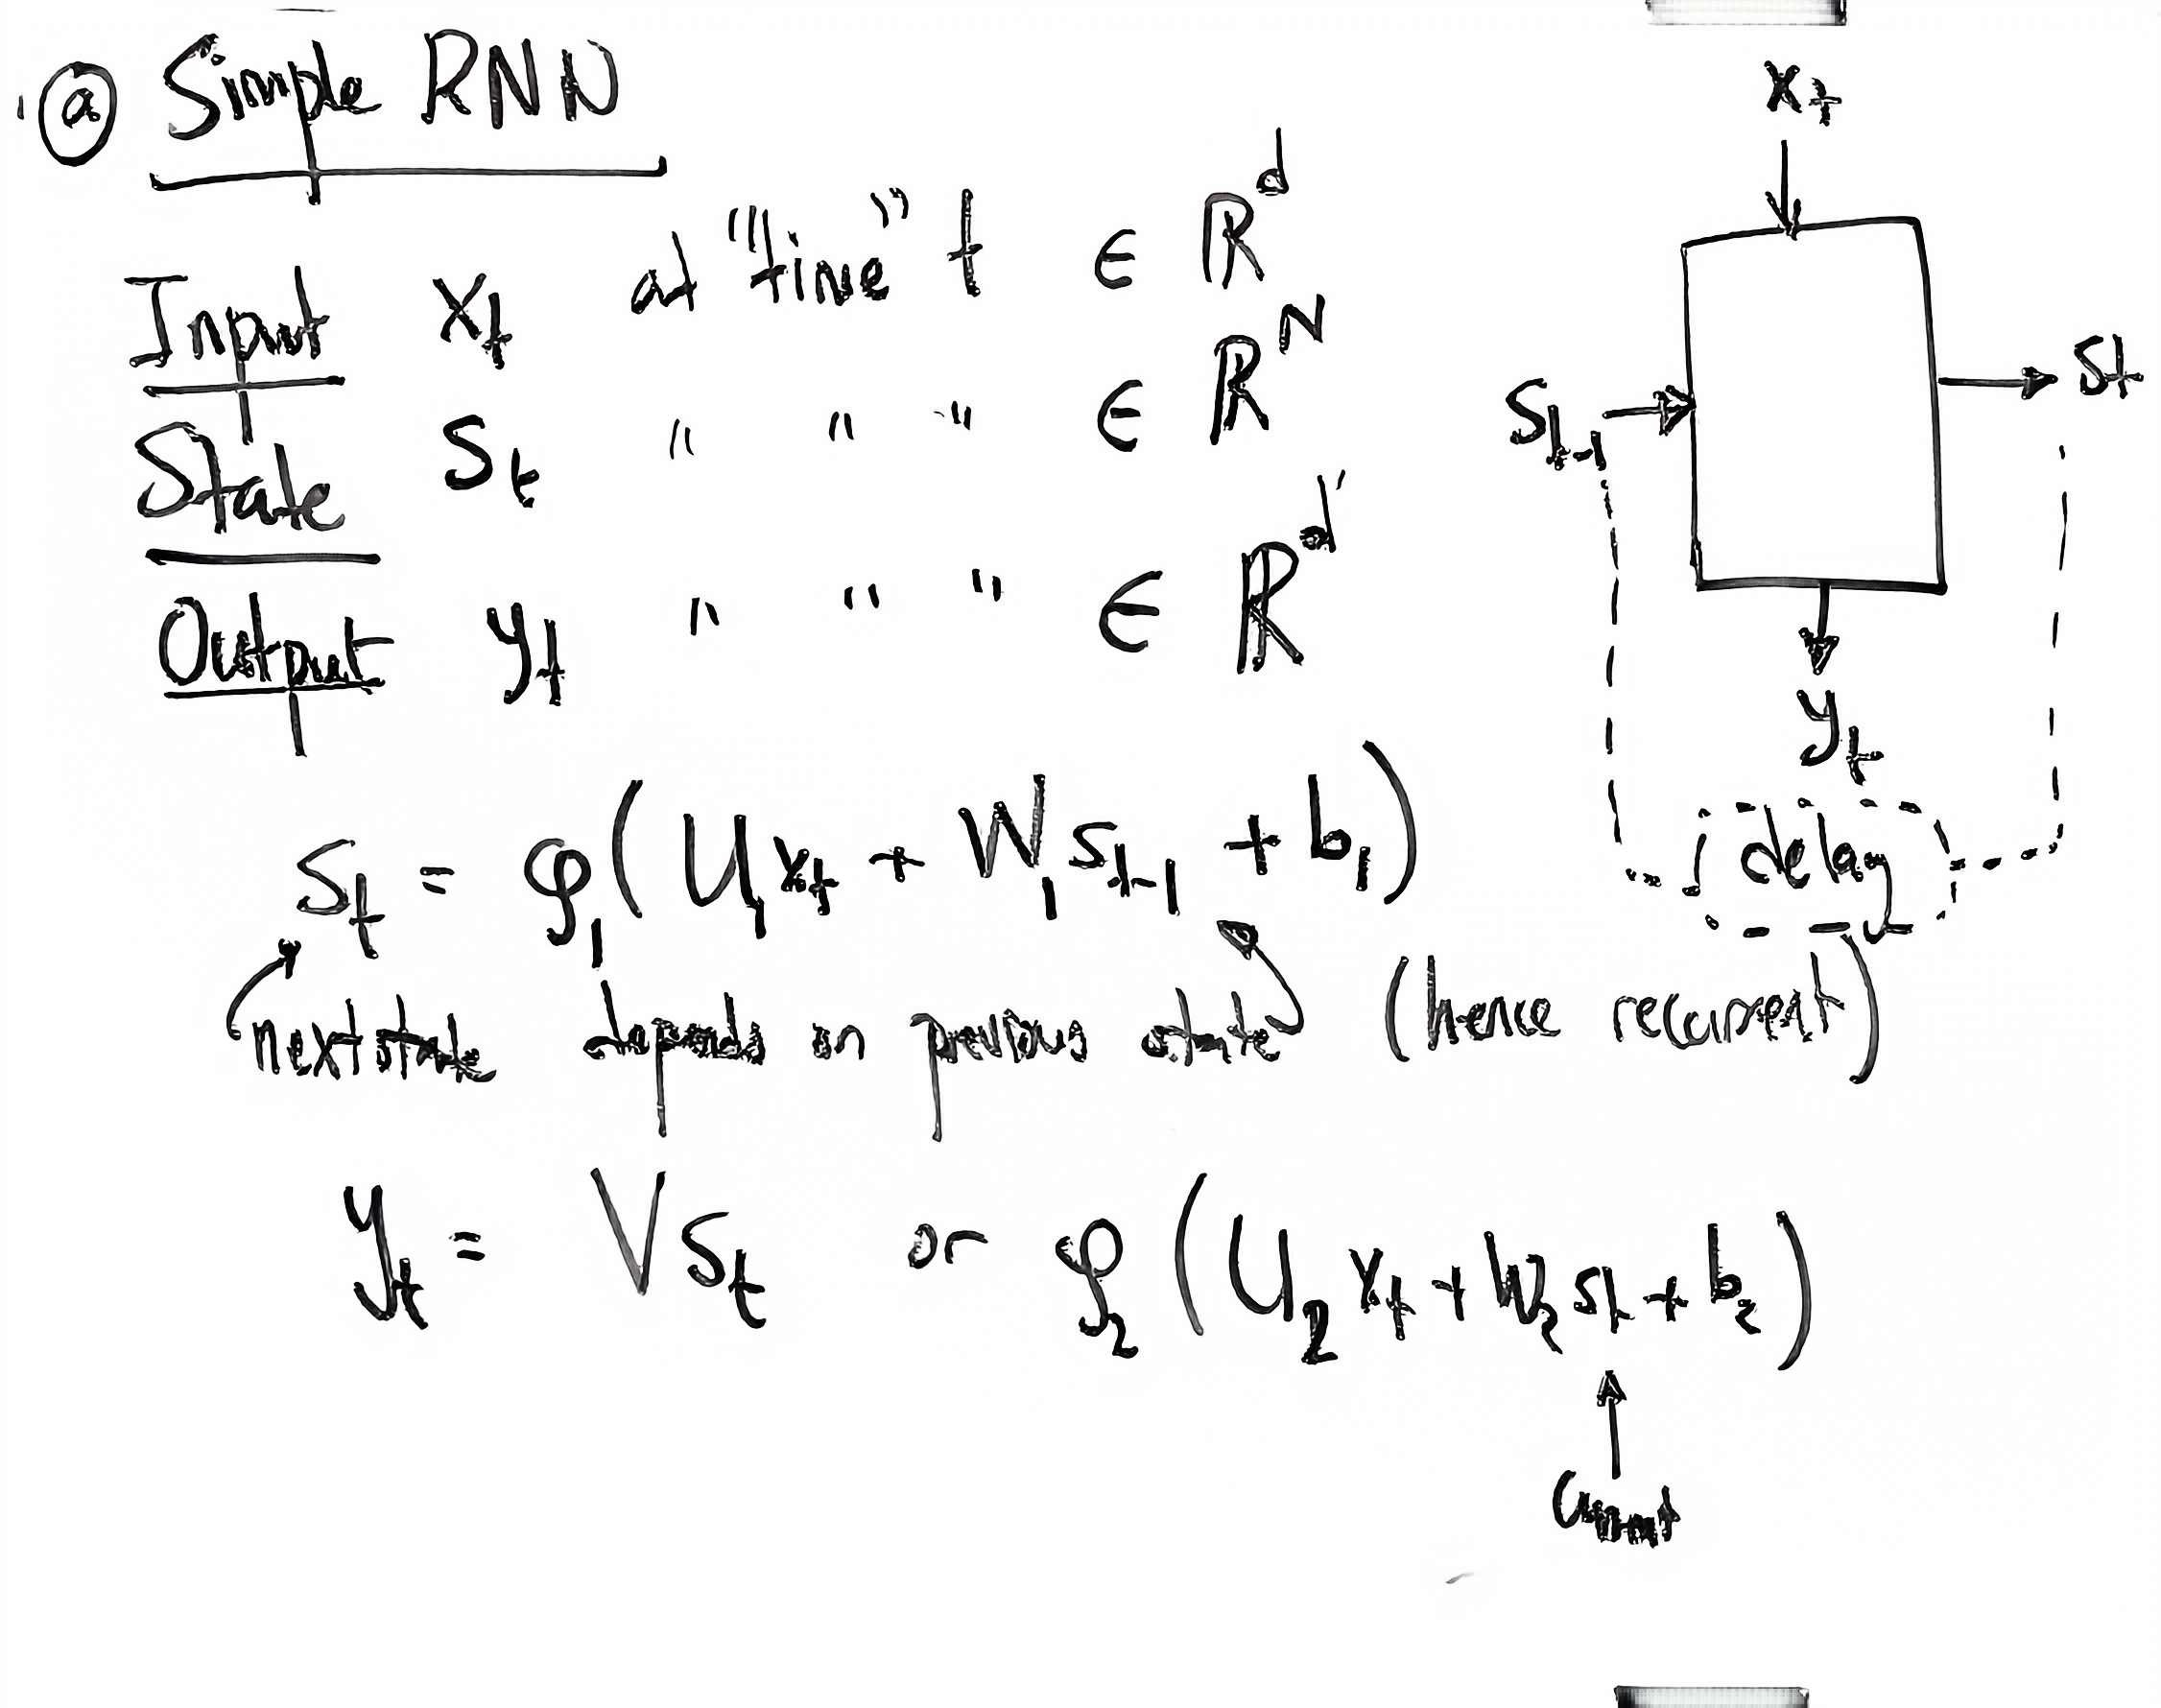 ⓐ Simple RNN
Input x_t at "time" t ∈ ℝ^d
State s_t " " " ∈ ℝ^N
Output y_t " " " ∈ ℝ^d'
x_t
s_{t-1}
s_t
y_t
delay
s_t = φ_1(U_1 x_t + W_1 s_{t-1} + b_1)
next state depends on previous state (hence recurrent)
y_t = V s_t or φ_2(U_2 x_t + W_2 s_t + b_2)
current